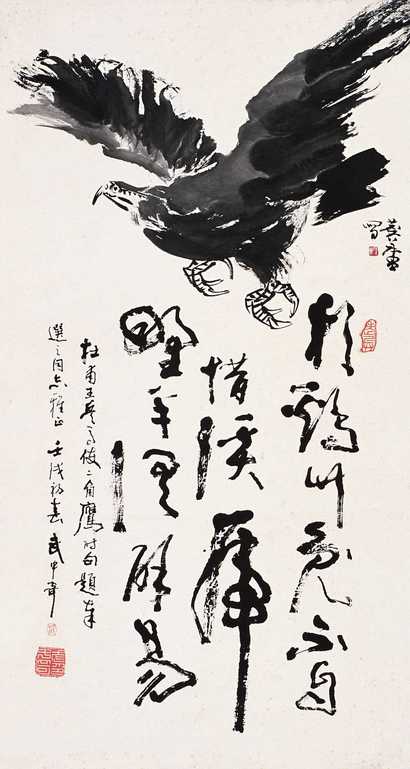 杉鷄竹兔不自
惜溪虎
野羊俱辟易
杜甫王兵马使二角鷹诗句題奉
選之同志雅正 壬戌初春 武中奇